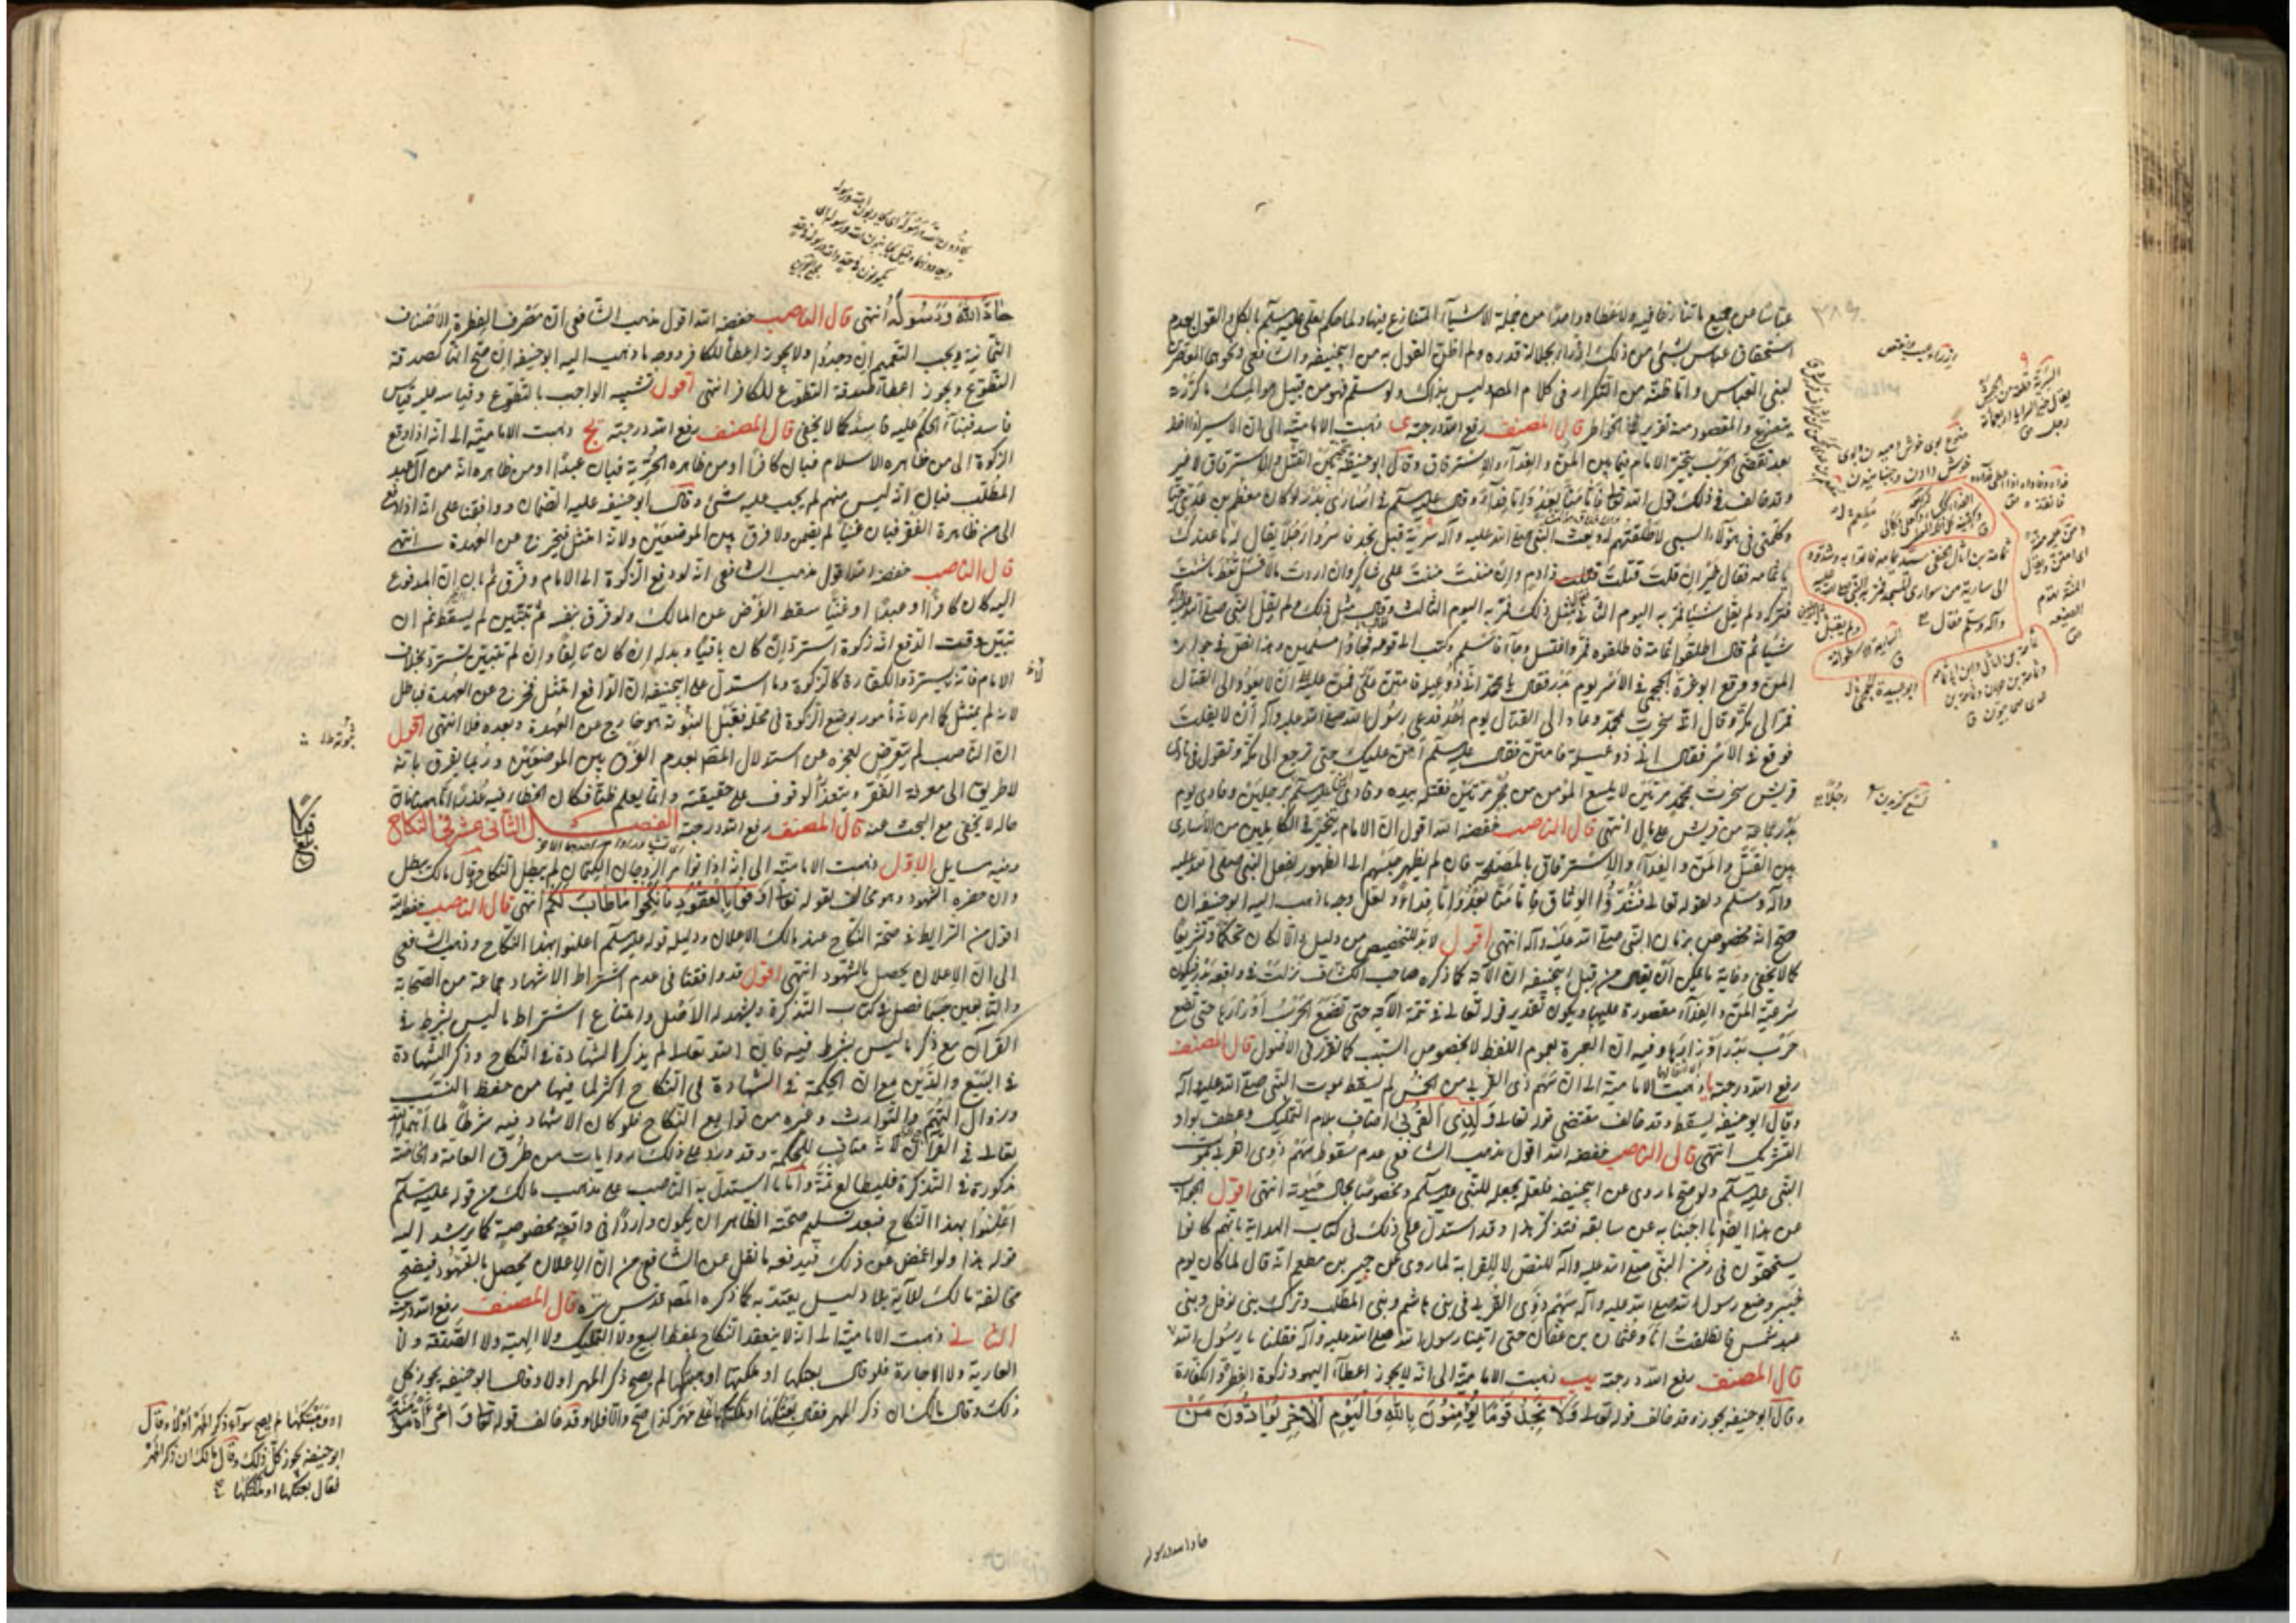 ٣٨٩
عباسا من جميع ما تنازعا فيه ولا عطاه واحدا من جملة الاشياء المتنازع فيها ولما حكم بالكل والقول بعدم
استحقاق عباس بشئ من ذلك ازراء بجلالة قدره ولم اظن القول به من ابيحنيفه والشافعى
لبنى العباس واما ظنه من التكرار فى كلام المصنف ليس بذاك ولو سلم فهو من قبيل هو المسك ما كررته
يتضوع والمقصود منه تقرير الخواطر قال المصنف رفع الله درجته ى ذهبت الامامية الى ان الاسير اذا اخذ
بعد تقضى الحرب يتخير الامام فيما بين المن والفداء والاسترقاق وقال ابوحنيفه يتخير بين القتل والاسترقاق لا غير
وقد خالف فى ذلك قول الله تعالى فاما منا بعد واما فداء وقال عليه السلم فى اسارى بدر لو كان مطعم بن عدى حيا
وكلمنى فى هؤلاء السبى لاطلقتهم له وبعث النبى صلى الله عليه وآله سرية قبل نجد فاسروا رجلا يقال له ما عندك
يا ثمامه فقال خير ان قتلت قتلت ذا دم وان مننت مننت على شاكر وان اردت مالا فسل تعط ما شئت
فتركه ولم يقل شيئا فمر به اليوم الثانى فقال مثل ذلك فمر به اليوم الثالث وقال مثل ذلك ولم يقل النبى صلى الله عليه
شيئا ثم قال اطلقوا ثمامة فاطلقوه فمر واغتسل وجاء فاسلم وكتب الى قومه فجاؤا مسلمين وهذا نص فى جواز
المن ووقع ابو غرة الجمحى فى الاسر يوم بدر فقال يا محمد انى ذو عيلة فامنن على فمن عليه على ان لا يعود الى القتال
فمر الى مكة وقال انى سخرت بمحمد وعاد الى القتال يوم احد فدعى رسول الله صلى الله عليه وآله ان لا يفلت
فوقع فى الاسر فقال انى ذو عيلة فامنن فقال عليه السلم امن عليك حتى ترجع الى مكة وتقول فى نادى
قريش سخرت بمحمد مرتين لا يلسع المؤمن من جحر مرتين فقتله بيده وفادى عليه السلم رجلا برجلين وفادى يوم
بدر جماعة من قريش على مال انتهى قال الناصب خفضه الله اقول ان الامام يتخير فى الكاملين من الاسارى
بين القتل والمن والفداء والاسترقاق بالمصلحة فان لم يظهر حبسهم الى الظهور لفعل النبى صلى الله عليه
وآله وسلم ولقوله تعالى فشدوا الوثاق فاما منا بعد واما فداء ولعل وجه ما ذهب اليه ابوحنيفه ان
صح انه مخصوص بزمان النبى صلى الله عليه وآله انتهى اقول لابد للتخصيص من دليل والا لكان تحكما وتشريعا
كما لا يخفى وغاية ما يمكن ان يقال من قبل ابيحنيفه ان الآية كما ذكره صاحب الكشاف نزلت فى واقعة بدر فيكون
شرعية المن والفداء مقصورة عليها ويكون تقدير قوله تعالى فى تتمة الآية حتى تضع الحرب اوزارها حتى تضع
حرب بدر اوزارها وفيه ان العبرة بعموم اللفظ لا بخصوص السبب كما تقرر فى الاصول قال المصنف
رفع الله درجته يا ذهبت الامامية الى ان سهم ذى القربى من الخمس لم يسقط بموت النبى صلى الله عليه وآله
وقال ابوحنيفه يسقط وقد خالف مقتضى قوله تعالى ولذى القربى اضاف بلام التمليك وعطف بواو
التشريك انتهى قال الناصب خفضه الله اقول مذهب الشافعى عدم سقوط سهم ذوى القربى بموت
النبى عليه السلم ولو صح ما روى عن ابيحنيفه فلعله يجعله للنبى عليه السلم ومخصوصا بحال حيوته انتهى اقول الجواب
عن هذا ايضا ما اجبنا به عن سابقه فتذكر هذا وقد استدل على ذلك فى كتاب الهداية بانهم كانوا
يستحقون فى زمن النبى صلى الله عليه وآله للنص لا للقرابة لما روى عن جبير بن مطعم انه قال لما كان يوم
خيبر وضع رسول الله صلى الله عليه وآله سهم ذوى القربى فى بنى هاشم وبنى المطلب وترك بنى نوفل وبنى
عبد شمس فانطلقت انا وعثمان بن عفان حتى اتينا رسول الله صلى الله عليه وآله فقلنا يا رسول الله
قال المصنف رفع الله درجته يب ذهبت الامامية الى انه لا يجوز اعطاء اليهود زكوة الفطر والكفارة
وقال ابوحنيفه يجوز وقد خالف قوله تعالى لا تجد قوما يؤمنون بالله واليوم الآخر يوادون من
حاد الله ورسوله
حاد الله ورسوله انتهى قال الناصب خفضه الله اقول مذهب الشافعى ان مصرف الفطرة الاصناف
الثمانية ويجب التعميم ان وجدوا ولا يجوز اعطاء للكافر ووجه ما ذهب اليه ابوحنيفه ان صح انها كصدقة
التطوع ويجوز اعطاء صدقة التطوع للكافر انتهى اقول تشبيه الواجب بالتطوع وقياسه عليه قياس
فاسد فبناء الحكم عليه فاسد كما لا يخفى قال المصنف رفع الله درجته يج ذهبت الامامية الى انه اذا دفع
الزكوة الى من ظاهره الاسلام فبان كافرا او من ظاهره الحرية فبان عبدا او من ظاهره انه من آل عبد
المطلب فبان انه ليس منهم لم يجب عليه شئ وقال ابوحنيفه عليه الضمان ووافقنا على انه اذا دفع
الى من ظاهره الفقر فبان غنيا لم يضمن ولا فرق بين الموضعين ولانه امتثل فيخرج عن العهدة انتهى
قال الناصب خفضه الله اقول مذهب الشافعى انه لو دفع الزكوة الى الامام وفرق ثم بان ان المدفوع
اليه كان كافرا او عبدا او غنيا سقط الفرض عن المالك ولو فرق بنفسه ثم تبين لم يسقط ثم ان
تبين وقت الدفع انه زكوة استرد ان كان باقيا وبدله ان كان تالفا وان لم تبين يسترد بخلاف
الامام فانه يسترد والكفارة كالزكوة وما استدل على ابيحنيفه ان الدافع امتثل فخرج عن العهدة فباطل
لانه لم يمتثل كامر لانه مأمور بوضع الزكوة فى محله فقبل الثبوت هو خارج عن العهدة وبعده فلا انتهى اقول
ان الناصب لم يتعرض لعجزه عن استدلال المصنف بعدم الفرق بين الموضعين وربما يفرق بانه
لا طريق الى معرفة الفقر ويتعذر الوقوف على حقيقته وانما يعلم ظنا فكان الخطاء فيه عذرا
حاله لا يخفى مع البحث عنه قال المصنف رفع الله درجته الفصل الثانى عشر فى النكاح
وفيه مسايل الاول ذهبت الامامية الى انه اذا تواصى الزوجان الكتمان لم يبطل النكاح وقال مالك يبطل
وان حضره الشهود وهو مخالف لقوله تعالى اوفوا بالعقود فانكحوا ما طاب لكم انتهى قال الناصب خفضه الله
اقول من الشرايط فى صحة النكاح عند مالك الاعلان ودليله قوله عليه السلم اعلنوا بهذا النكاح وذهب الشافعى
الى ان الاعلان يحصل بالشهود انتهى اقول قد وافقنا فى عدم اشتراط الاشهاد جماعة من الصحابة
والتابعين حسبما فصل فى كتاب التذكرة ويشهد له الاصل وامتناع اشتراط ما ليس بشرط فى
القرآن مع ذكر ما ليس بشرط فيه فان الله تعالى لم يذكر الشهادة فى النكاح وذكر الشهادة
فى البيع والدين مع ان الحكمة فى الشهادة فى النكاح اكثر لما فيها من حفظ النسب
وزوال التهم والتوارث وغيره من توابع النكاح فلو كان الاشهاد فيه شرطا لما اهمله الله
تعالى فى القرآن لانه مناف للحكمة وقد ورد على ذلك روايات من طرق العامة والخاصة
مذكورة فى التذكرة فليطالع ثمة واما ما استدل به الناصب على مذهب مالك من قوله عليه السلم
اعلنوا بهذا النكاح فبعد تسليم صحته الظاهر ان يكون واردا فى واقعة مخصوصة كما يرشد اليه
قوله هذا ولو اغمض عن ذلك فيدفعه ما نقل عن الشافعى من ان الاعلان يحصل بالشهود فيصح
مخالفة مالك للآية بلا دليل يعتد به كما ذكره المصنف قدس سره قال المصنف رفع الله درجته
الثانى ذهبت الامامية الى انه لا ينعقد النكاح بلفظ البيع ولا التمليك ولا الهبة ولا الصدقة ولا
العارية ولا الاجارة فلو قال بعتكها او ملكتها او وهبتكها لم يصح ذكر المهر اولا وقال ابوحنيفه يجوز كل
ذلك وقال مالك ان ذكر المهر فقال بعتكها او ملكتكها على مهر كذا صح والا فلا وقد خالف قوله تعالى وامرأة مؤمنة
او وهبتكها لم يصح سواء ذكر المهر اولا وقال
ابوحنيفه يجوز كل ذلك وقال مالك ان ذكر المهر
فقال بعتكها او ملكتكها